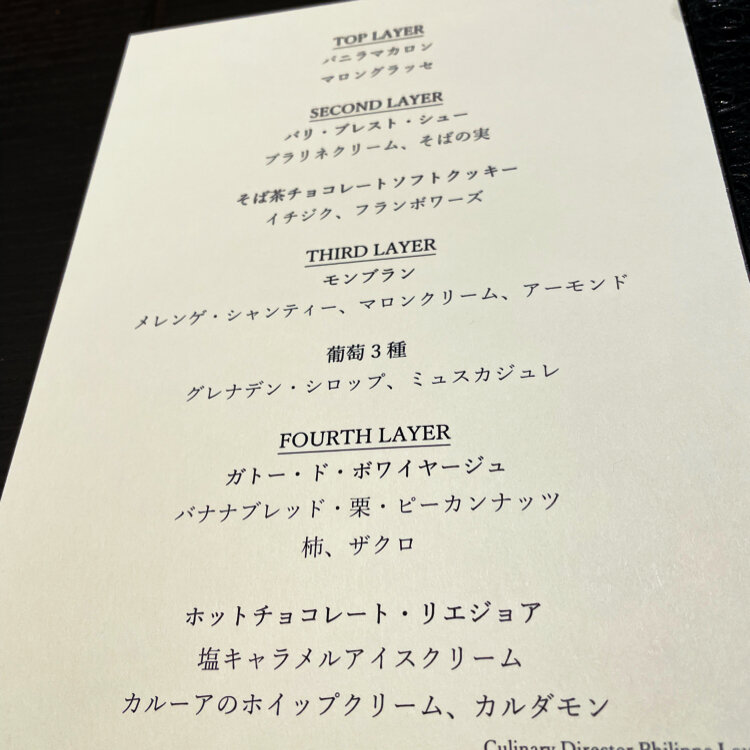 TOP LAYER
バニラマカロン
マロングラッセ
SECOND LAYER
パリ・ブレスト・シュー
プラリネクリーム、そばの実
そば茶チョコレートソフトクッキー
イチジク、フランボワーズ
THIRD LAYER
モンブラン
メレンゲ・シャンティー、マロンクリーム、アーモンド
葡萄3種
グレナデン・シロップ、ミュスカジュレ
FOURTH LAYER
ガトー・ド・ボワイヤージュ
バナナブレッド・栗・ピーカンナッツ
柿、ザクロ
ホットチョコレート・リエジョア
塩キャラメルアイスクリーム
カルーアのホイップクリーム、カルダモン
Culinary Director Philippe